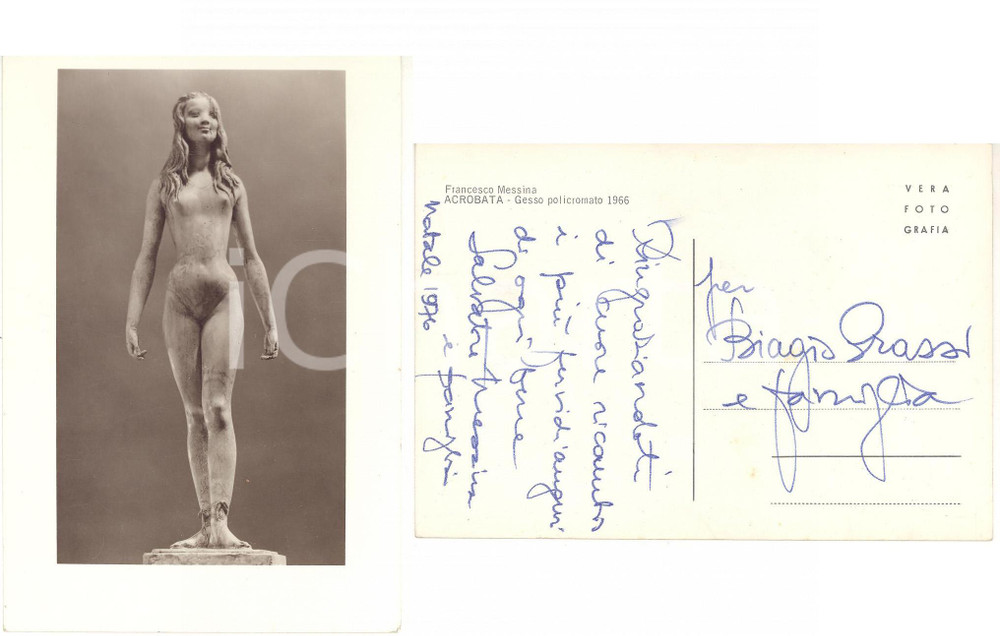 Francesco Messina
ACROBATA - Gesso policromato 1966
VERA
FOTO
GRAFIA
Ringraziandoti
di cuore ricambio
i più fervidi auguri
di ogni bene
Salvatore Messina
e famiglia
Natale 1976
per
Biagio Grassi
e famiglia
iC